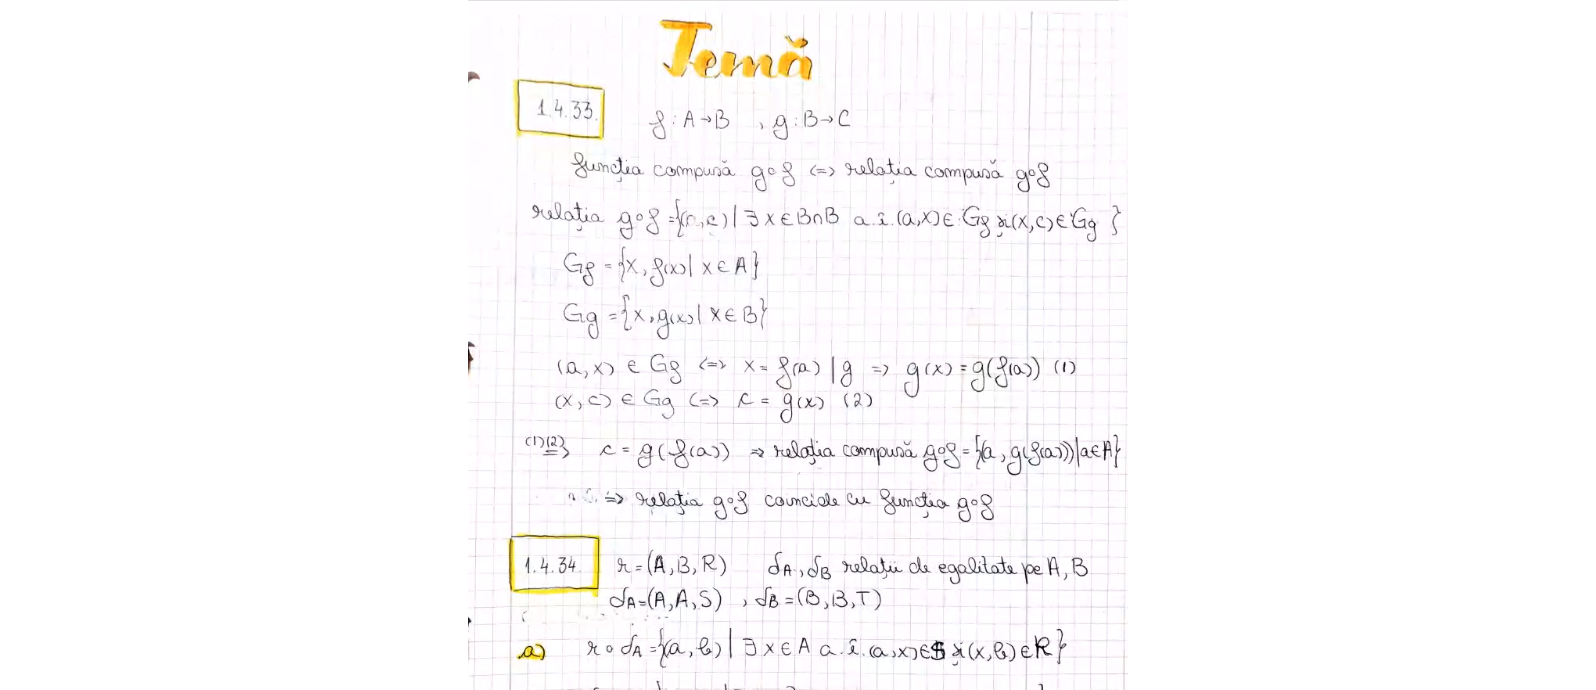 Temă
1.4.33. f : A→B , g : B→C
funcția compusă g∘f <=> relația compusă g∘f
relația g∘f = {(a,c) | ∃ x ∈ B∩B a.î. (a,x) ∈ Gf și (x,c) ∈ Gg }
Gf = {x, f(x) | x ∈ A}
Gg = {x, g(x) | x ∈ B}
(a,x) ∈ Gf <=> x = f(a) | g => g(x) = g(f(a)) (1)
(x,c) ∈ Gg <=> c = g(x) (2)
(1)(2) => c = g(f(a)) => relația compusă g∘f = {(a, g(f(a))) | a∈A}
=> relația g∘f coincide cu funcția g∘f
1.4.34 r = (A,B,R) δA, δB relații de egalitate pe A, B
δA=(A,A,S) , δB=(B,B,T)
a) r∘δA = {(a,b) | ∃ x ∈ A a.î. (a,x)∈S și (x,b) ∈ R}